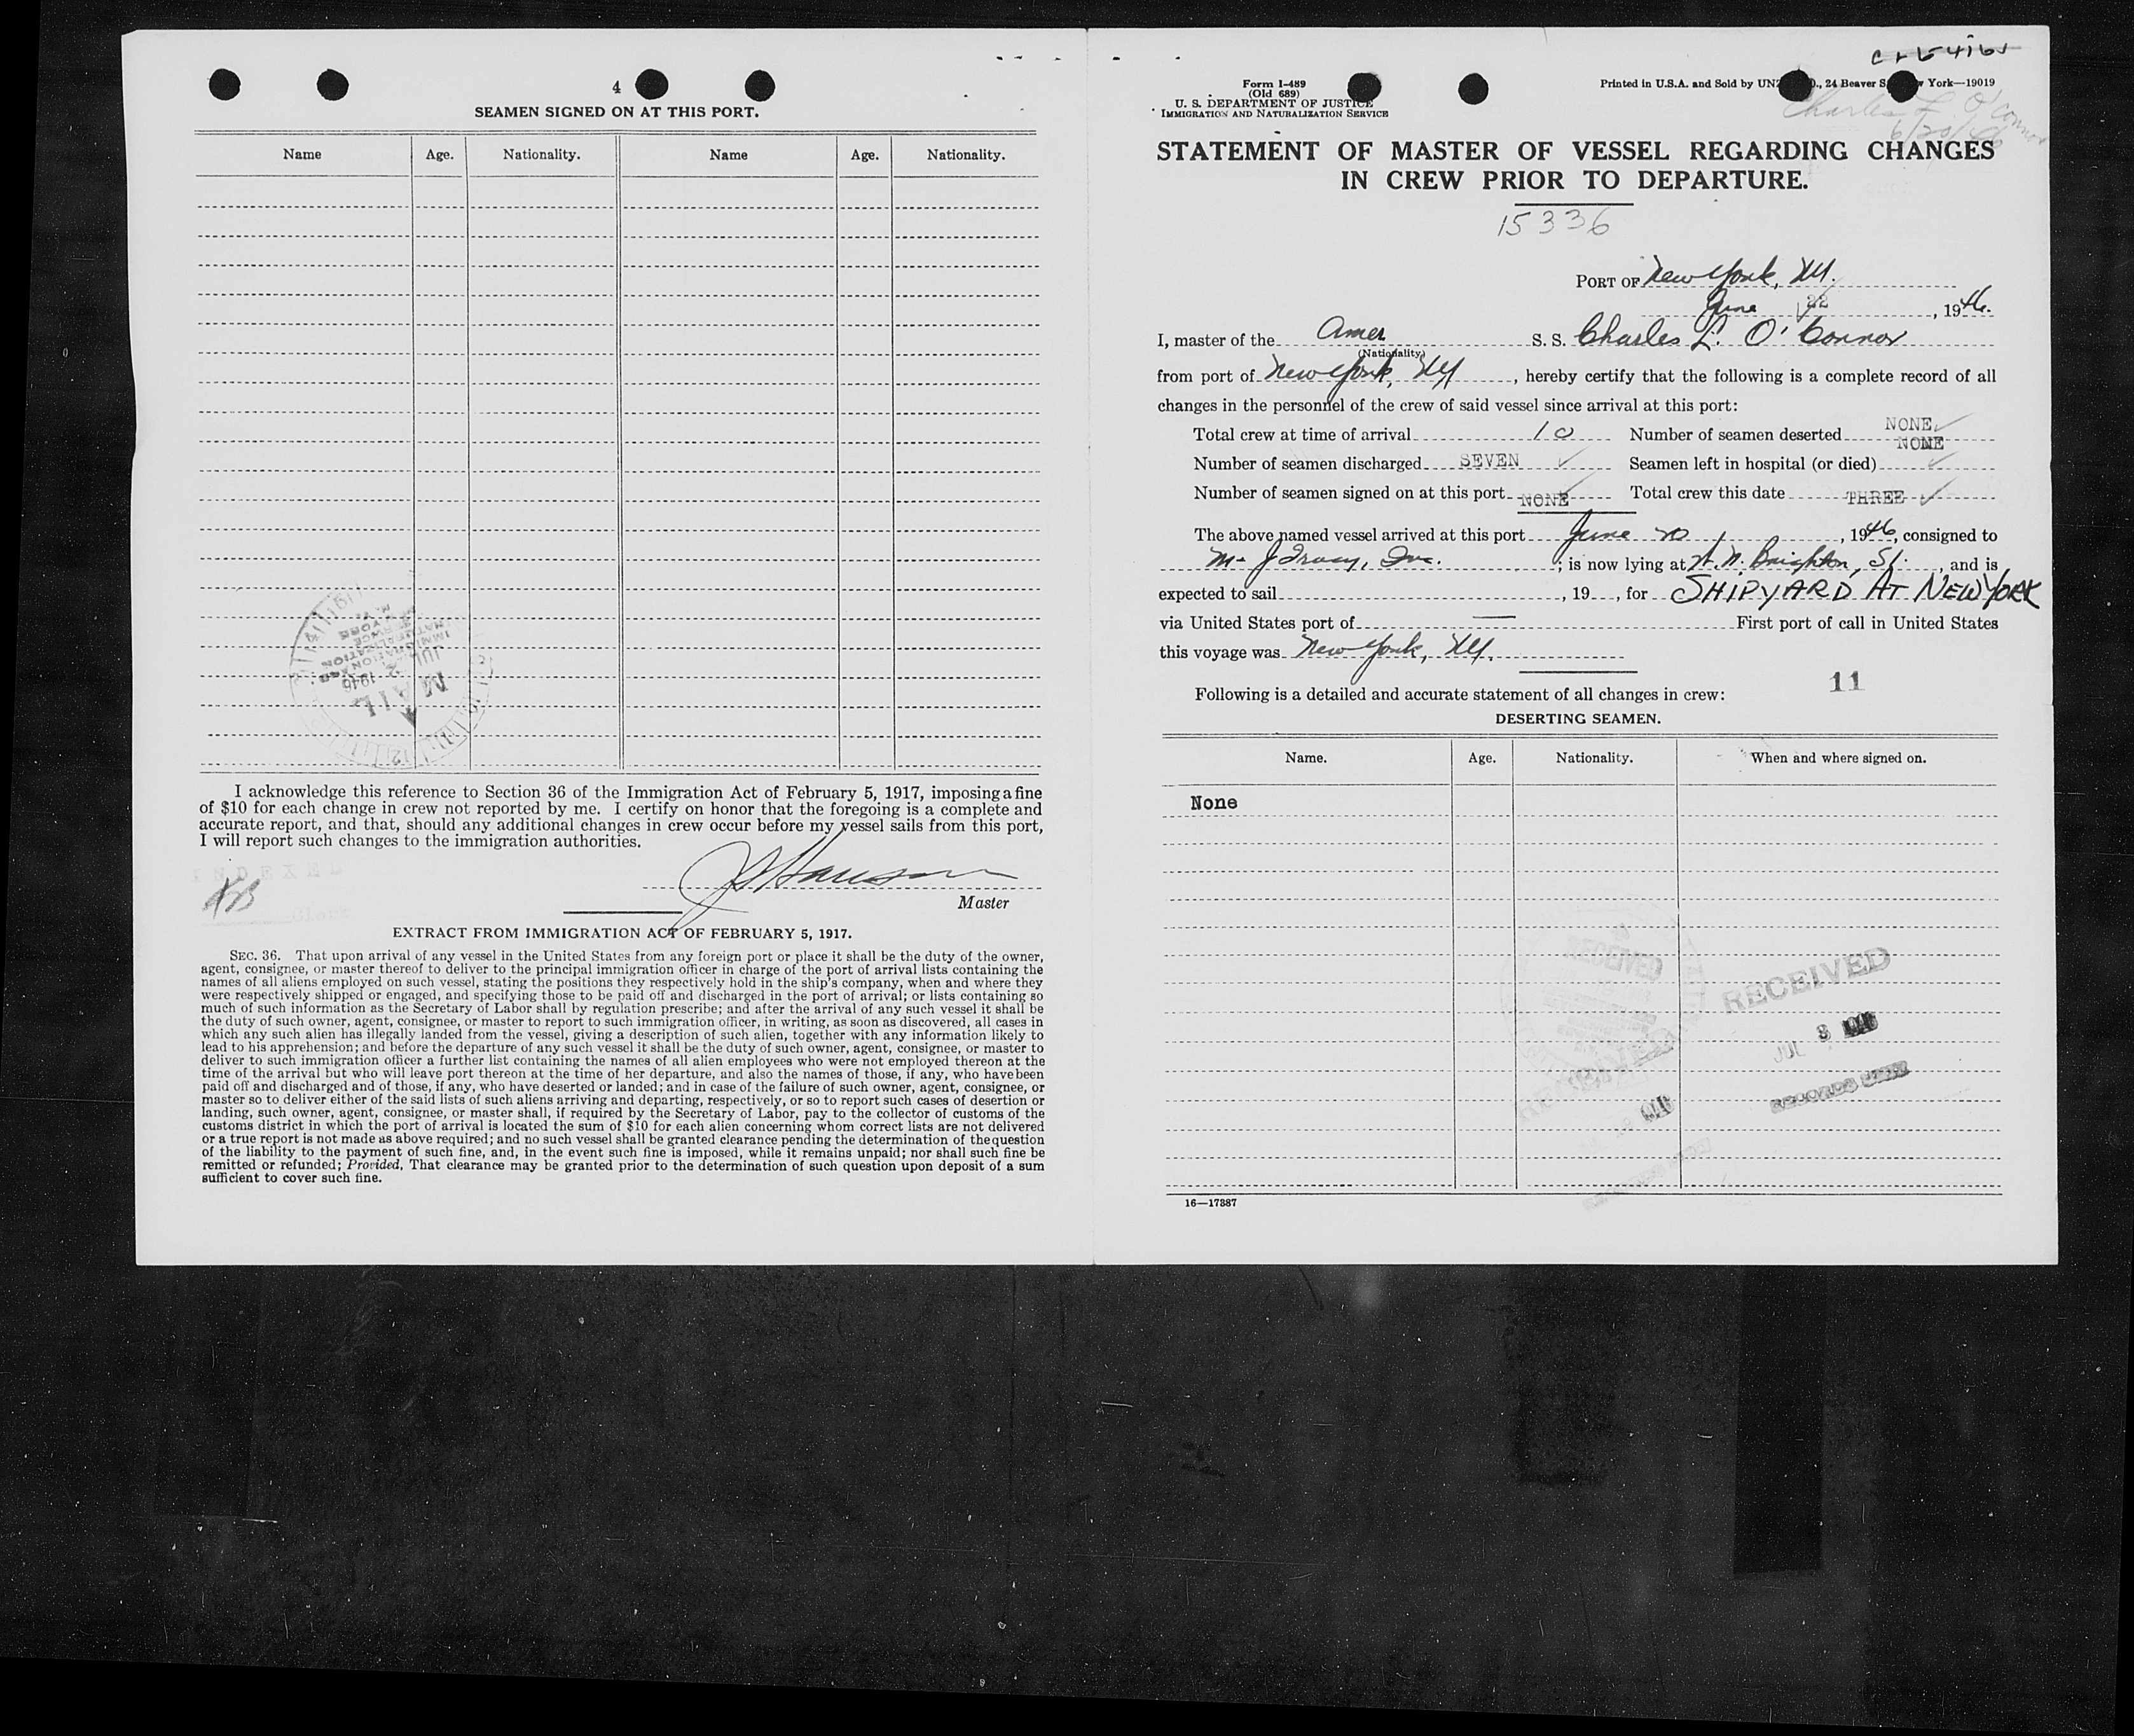 4
SEAMEN SIGNED ON AT THIS PORT.
Name Age. Nationality. Name Age. Nationality.
MAIL
JUL 2 1946
I acknowledge this reference to Section 36 of the Immigration Act of February 5, 1917, imposing a fine
of $10 for each change in crew not reported by me. I certify on honor that the foregoing is a complete and
accurate report, and that, should any additional changes in crew occur before my vessel sails from this port,
I will report such changes to the immigration authorities.
INDEXED
Master
EXTRACT FROM IMMIGRATION ACT OF FEBRUARY 5, 1917.
SEC. 36. That upon arrival of any vessel in the United States from any foreign port or place it shall be the duty of the owner,
agent, consignee, or master thereof to deliver to the principal immigration officer in charge of the port of arrival lists containing the
names of all aliens employed on such vessel, stating the positions they respectively hold in the ship's company, when and where they
were respectively shipped or engaged, and specifying those to be paid off and discharged in the port of arrival; or lists containing so
much of such information as the Secretary of Labor shall by regulation prescribe; and after the arrival of any such vessel it shall be
the duty of such owner, agent, consignee, or master to report to such immigration officer, in writing, as soon as discovered, all cases in
which any such alien has illegally landed from the vessel, giving a description of such alien, together with any information likely to
lead to his apprehension; and before the departure of any such vessel it shall be the duty of such owner, agent, consignee, or master to
deliver to such immigration officer a further list containing the names of all alien employees who were not employed thereon at the
time of the arrival but who will leave port thereon at the time of her departure, and also the names of those, if any, who have been
paid off and discharged and of those, if any, who have deserted or landed; and in case of the failure of such owner, agent, consignee, or
master so to deliver either of the said lists of such aliens arriving and departing, respectively, or so to report such cases of desertion or
landing, such owner, agent, consignee, or master shall, if required by the Secretary of Labor, pay to the collector of customs of the
customs district in which the port of arrival is located the sum of $10 for each alien concerning whom correct lists are not delivered
or a true report is not made as above required; and no such vessel shall be granted clearance pending the determination of the question
of the liability to the payment of such fine, and, in the event such fine is imposed, while it remains unpaid; nor shall such fine be
remitted or refunded; Provided, That clearance may be granted prior to the determination of such question upon deposit of a sum
sufficient to cover such fine.
Form I-489
(Old 689)
U. S. DEPARTMENT OF JUSTICE
IMMIGRATION AND NATURALIZATION SERVICE
Printed in U.S.A. and Sold by 24 Beaver York—19019
Charles L. O'Connor
6/20/46
STATEMENT OF MASTER OF VESSEL REGARDING CHANGES
IN CREW PRIOR TO DEPARTURE.
15336
PORT OF New York, NY.
June 22, 1946.
I, master of the Amer S. S. Charles L. O'Connor
(Nationality)
from port of New York, NY, hereby certify that the following is a complete record of all
changes in the personnel of the crew of said vessel since arrival at this port:
Total crew at time of arrival 10 Number of seamen deserted NONE
Number of seamen discharged SEVEN Seamen left in hospital (or died) NONE
Number of seamen signed on at this port NONE Total crew this date THREE
The above named vessel arrived at this port June 20, 1946, consigned to
M. J Tracy, Inc.; is now lying at Brighton, St., and is
expected to sail , 19 , for SHIPYARD AT NEW YORK
via United States port of — First port of call in United States
this voyage was New York, NY.
Following is a detailed and accurate statement of all changes in crew: 11
DESERTING SEAMEN.
Name. Age. Nationality. When and where signed on.
None
RECEIVED
RECEIVED
JUL 3
16—17387